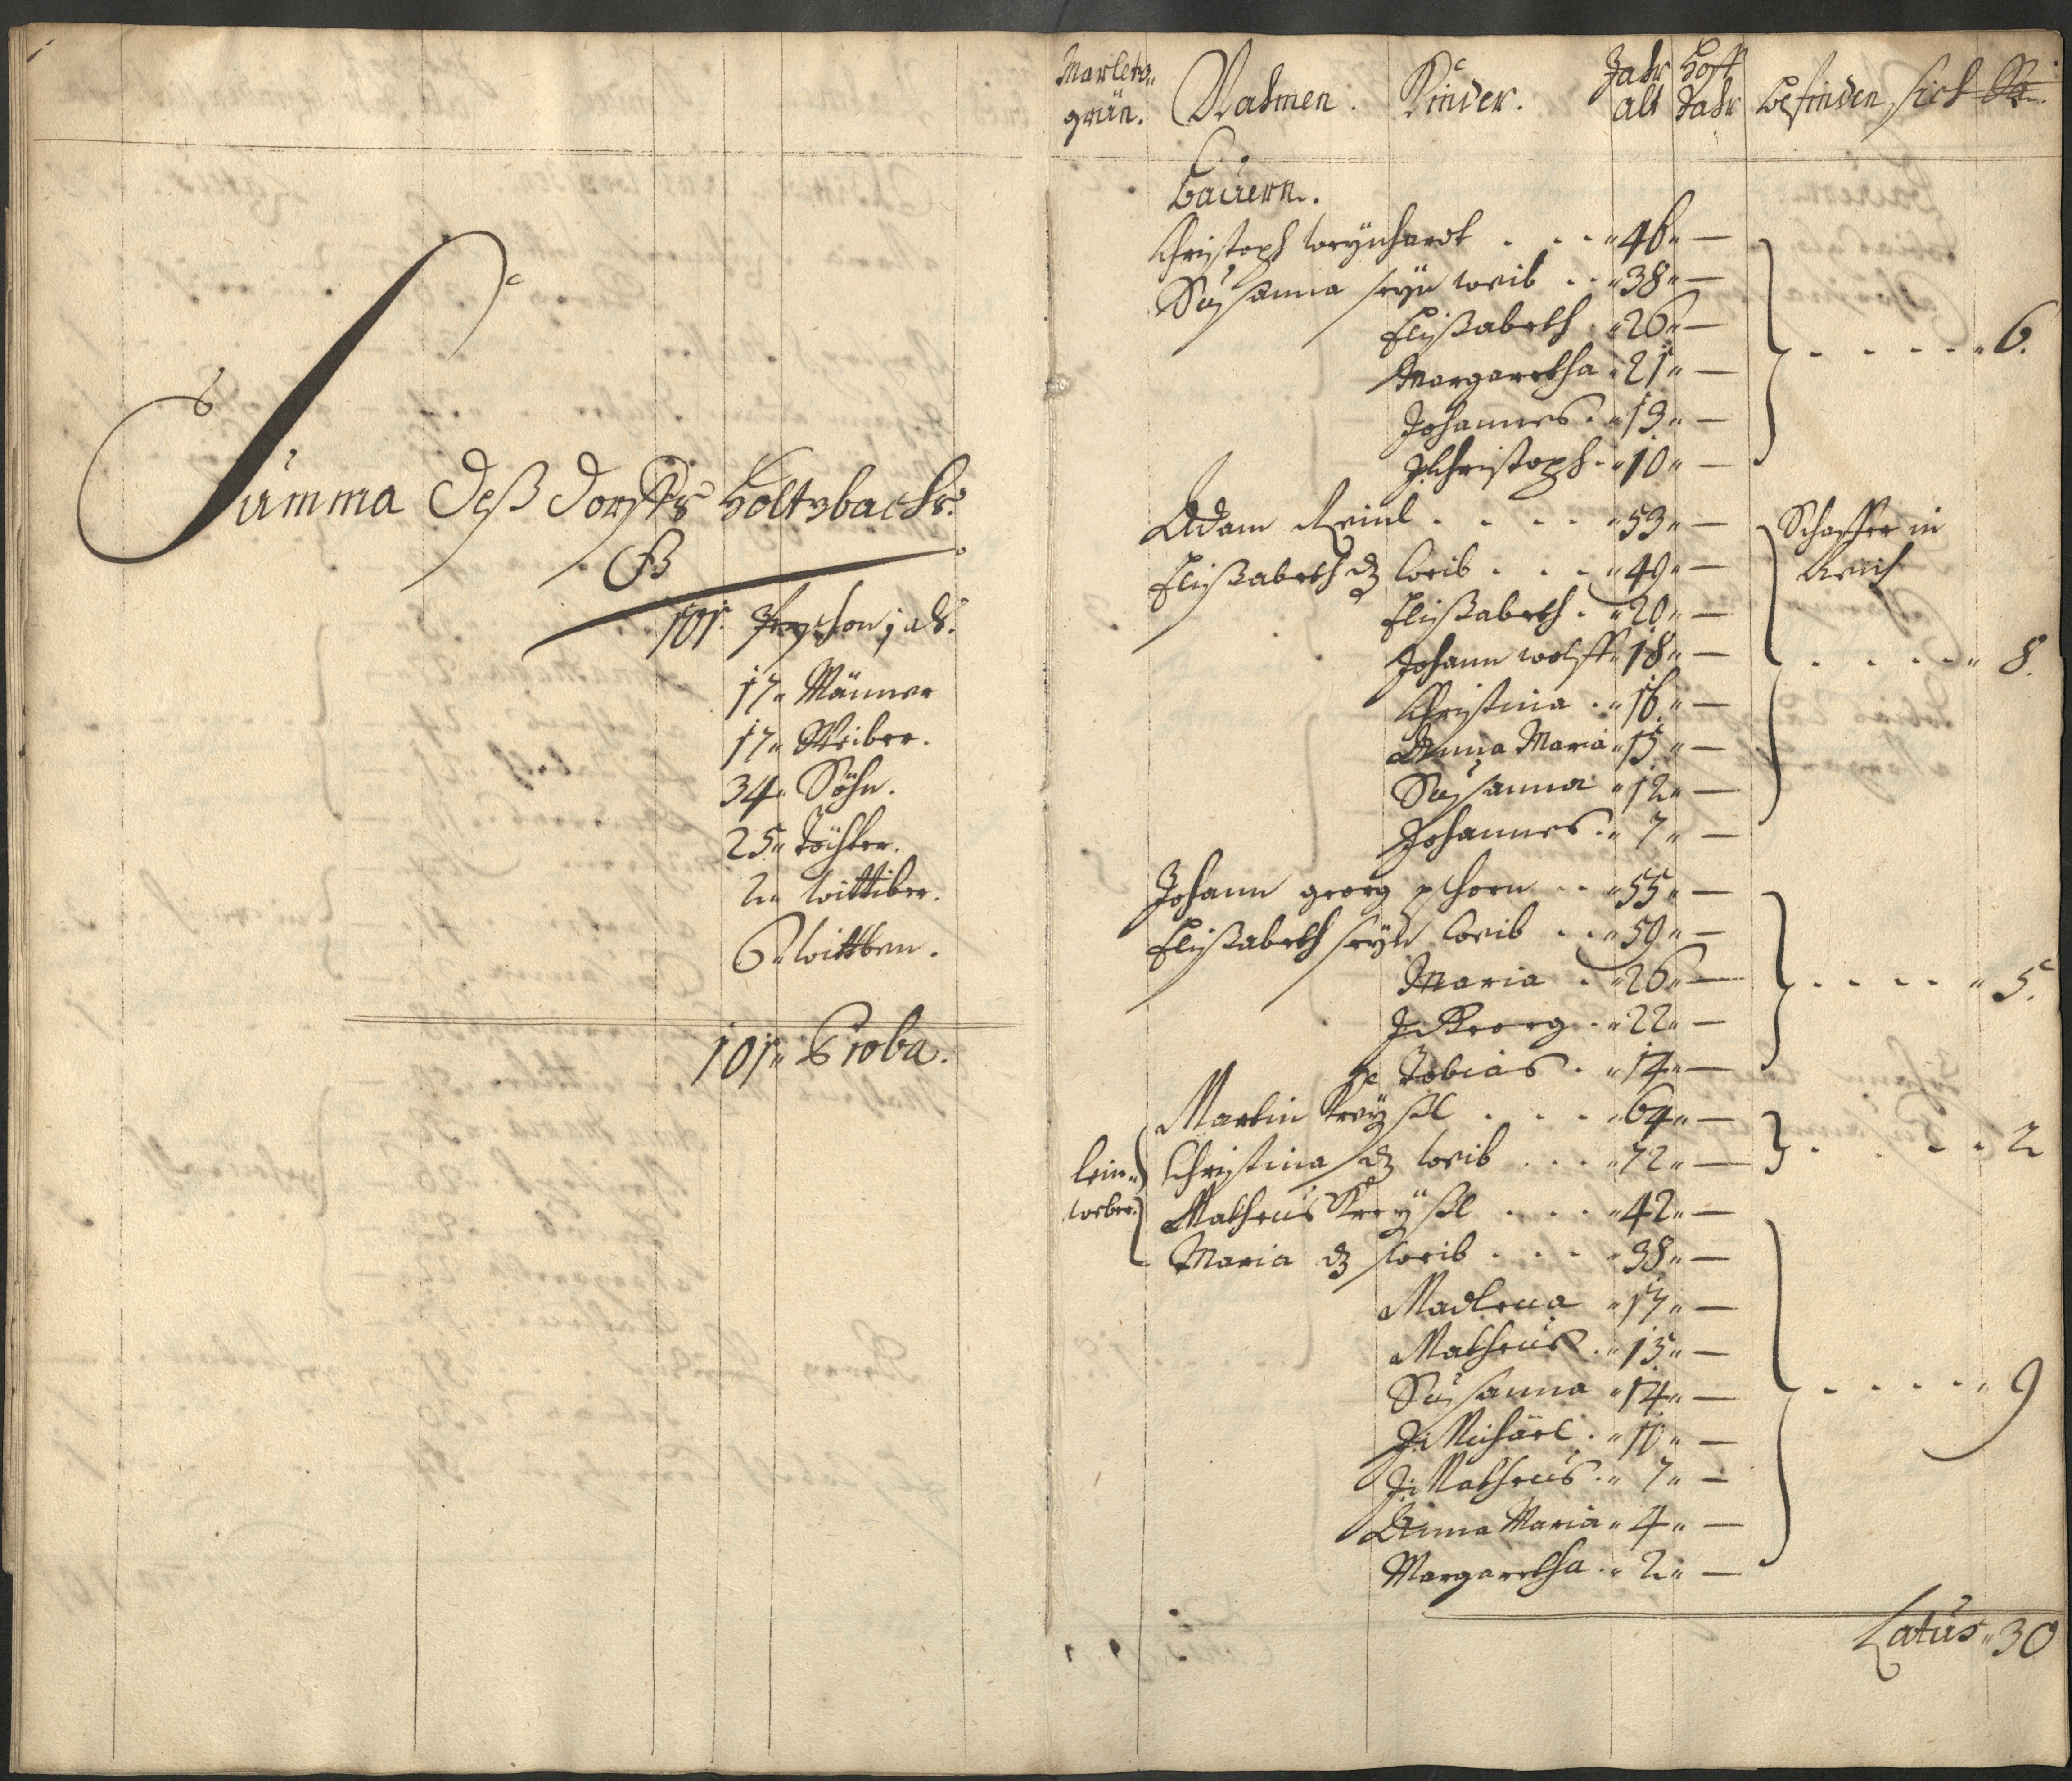 Summa deß dorffs Holtzbachs
101. Persohn; alß.
17" Männer
17" Weiber.
34" Söhn.
25" Töchter.
2" wittiber.
6" wittben.
101" Proba.
Markets"
grün.
Nahmen. Kinder. Jahr alt Hoff Jahr befinden sich
Bauern.
Christoph weÿnhardt . . . "46"—
Susanna seÿn weib . . "38"—
Elißabeth . "26"—
Margaretha "21"—
Johannes . "13"—
J. Christoph . "10"— . . . . . "6.
Adam Reinl . . . . "53"— Schaffer in
Elißabeth dz weib . . . "49"—
Elißabeth . "20"—
Johann wolff "18"— . . . . . " 8.
Christina . "16"—
Anna Maria "15"—
Susanna "12"—
Johannes . " 7"—
Johann georg pschorn . . "55"—
Elißabeth seÿn weib . . "59"—
Maria . "26"— . . . . " 5.
J. Georg . "22"—
Tobias . "14"—
Martin Kreÿßl . . . "64"—
lein"
weber.
Christina dz weib . . . "72"— . . . . 2
Matheus Kreÿßl . . . . "42"—
Maria dz weib . . . . "38"—
Madlena "17"—
Matheus . "15"—
Susanna "14"— . . . . . " 9
J. Michäel . "10"—
J. Matheus . " 7"—
Anna Maria " 4"—
Margaretha . " 2"—
Latus " 30